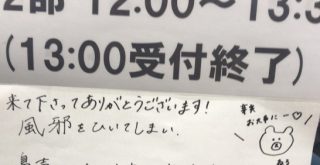 2部 12:00~13:3
(13:00受付終了)
来て下さってありがとうございます!
風邪をひいてしまい、
お大事にー♡